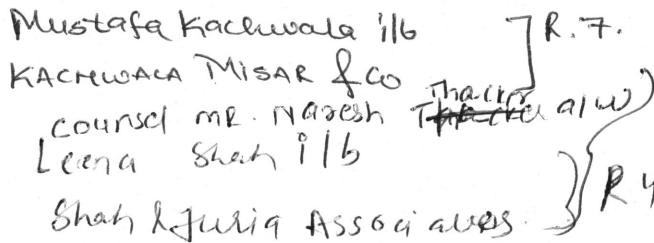 Mustafa Kachwala i/b R.7.
KACHWALA MISAR & CO
Counsel MR. Naresh Thacker a/w
Leena Shah i/b R 4
Shah & Furia Associates.